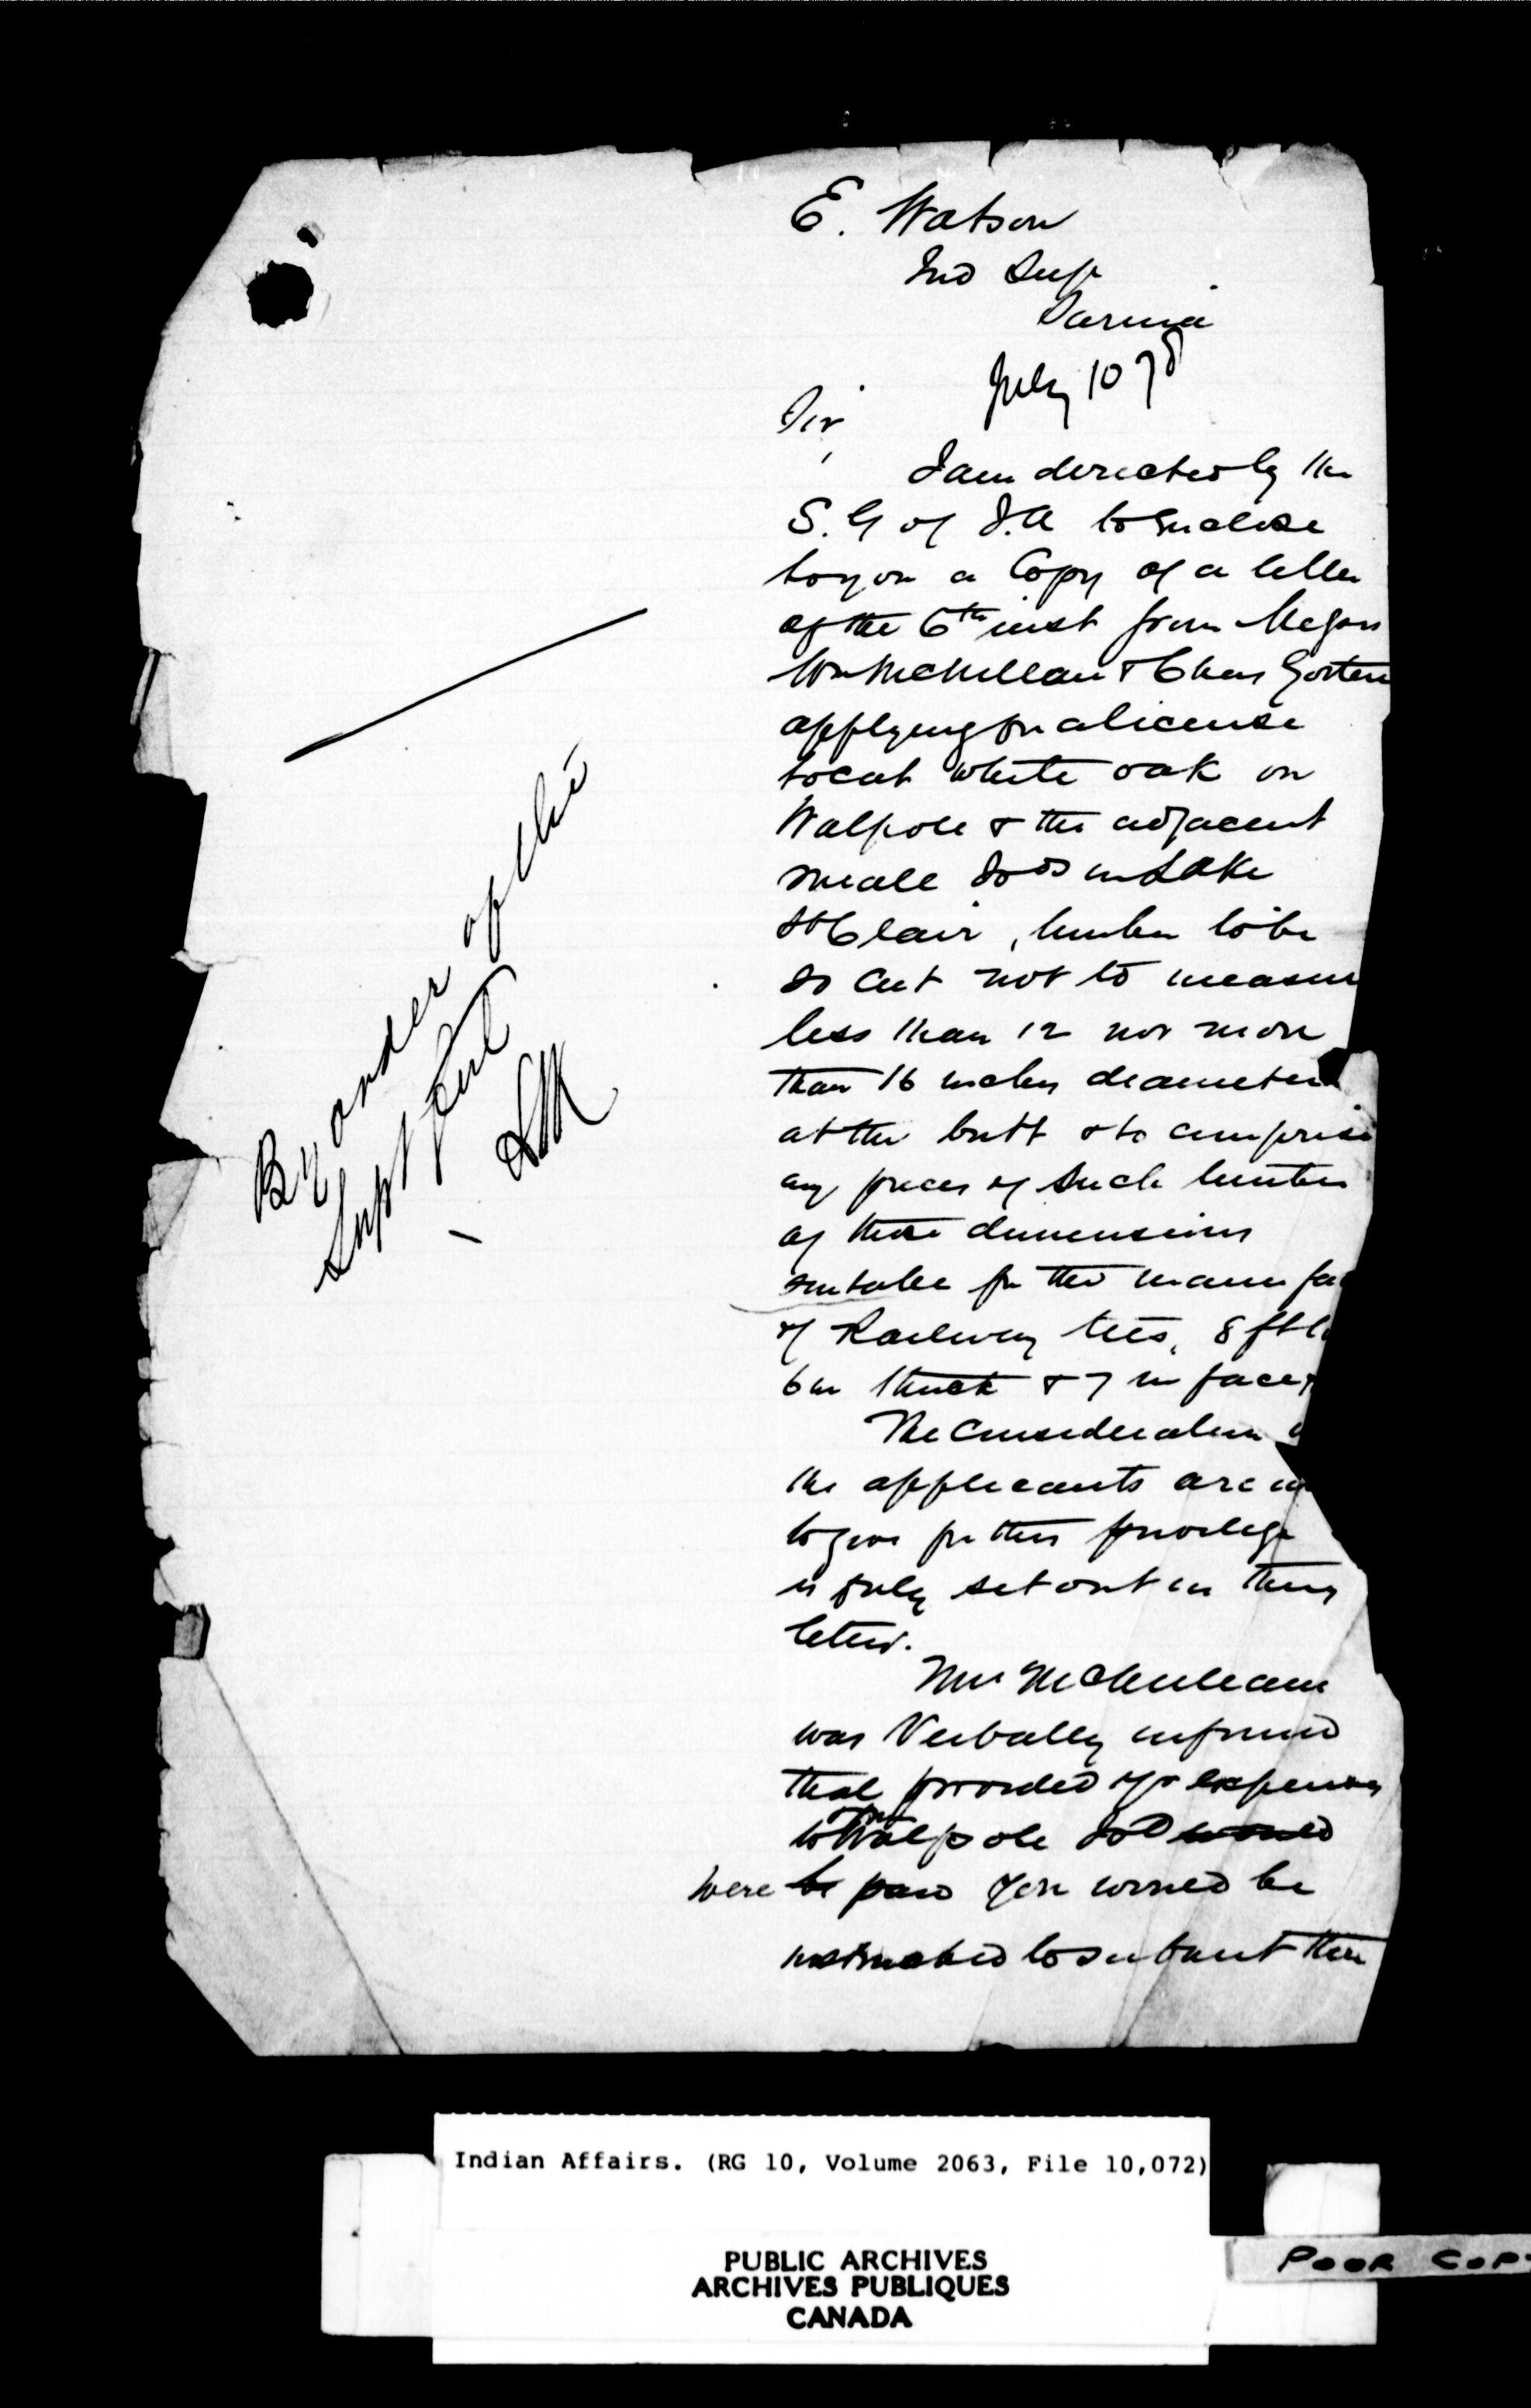 E. Watson
Ind Sup
Sarnia
July 10 78
Sir,
I am directed by the
S. G of I. A to enclose
to you a Copy of a letter
of the 6th inst from Messrs
Wm McMillan & Chas
applying for a license
to cut white oak on
Walpole & the adjacent
small Isds in Lake
St Clair, timber to be
so cut not to measure
less than 12 nor more
than 16 inches diameter
at the butt & to comprise
any pieces of such timber
of these dimensions
suitable for the manufac
of Railway ties, 8 ft l
6 in thick & 7 in face,
The Consideration
the applicants are
to give for this privilege
is fully set out in their
letter.
Mr McMillan
was Verbally informed
that provided yr expenses
to Walpole Isd would
were be paid you would be
instructed to submit their
By order of the
Supt Genl
Indian Affairs. (RG 10, Volume 2063, File 10,072)
PUBLIC ARCHIVES
ARCHIVES PUBLIQUES
CANADA
POOR COP